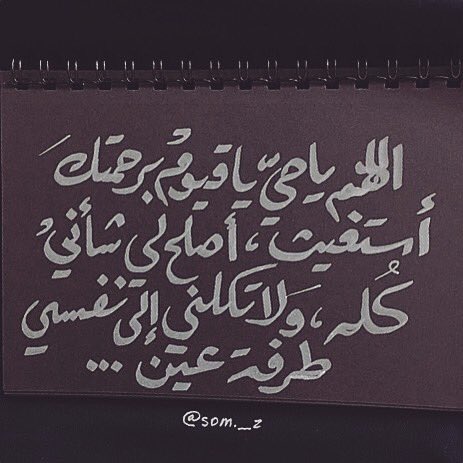 اللهم يا حيّ يا قيومُ برحمتكَ
أستغيث، أصلح لي شأنيْ
كُله، وَلا تكلني إلى نفسي
طرفة عين ...
@som._z